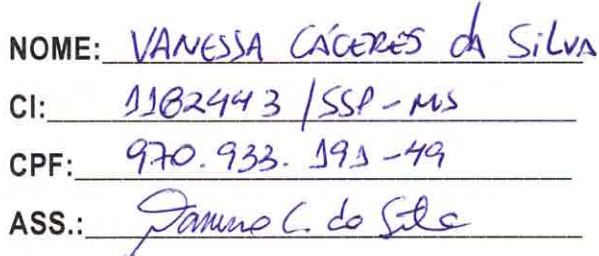 NOME: VANESSA CÁCERES da SiLVA
CI: 1182443 / SSP-MS
CPF: 970.933.191-49
ASS.: C. da Silva